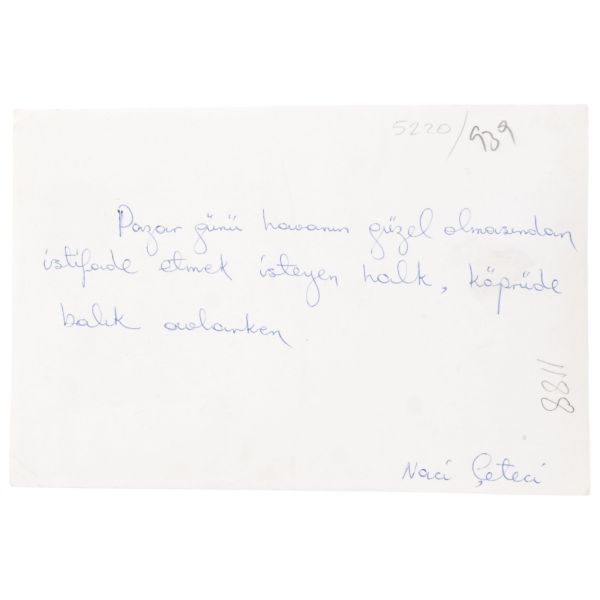 5220/939
Pazar günü havanın güzel olmasından
istifade etmek isteyen halk, köprüde
balık avlanken.
8811
Naci Çeteci